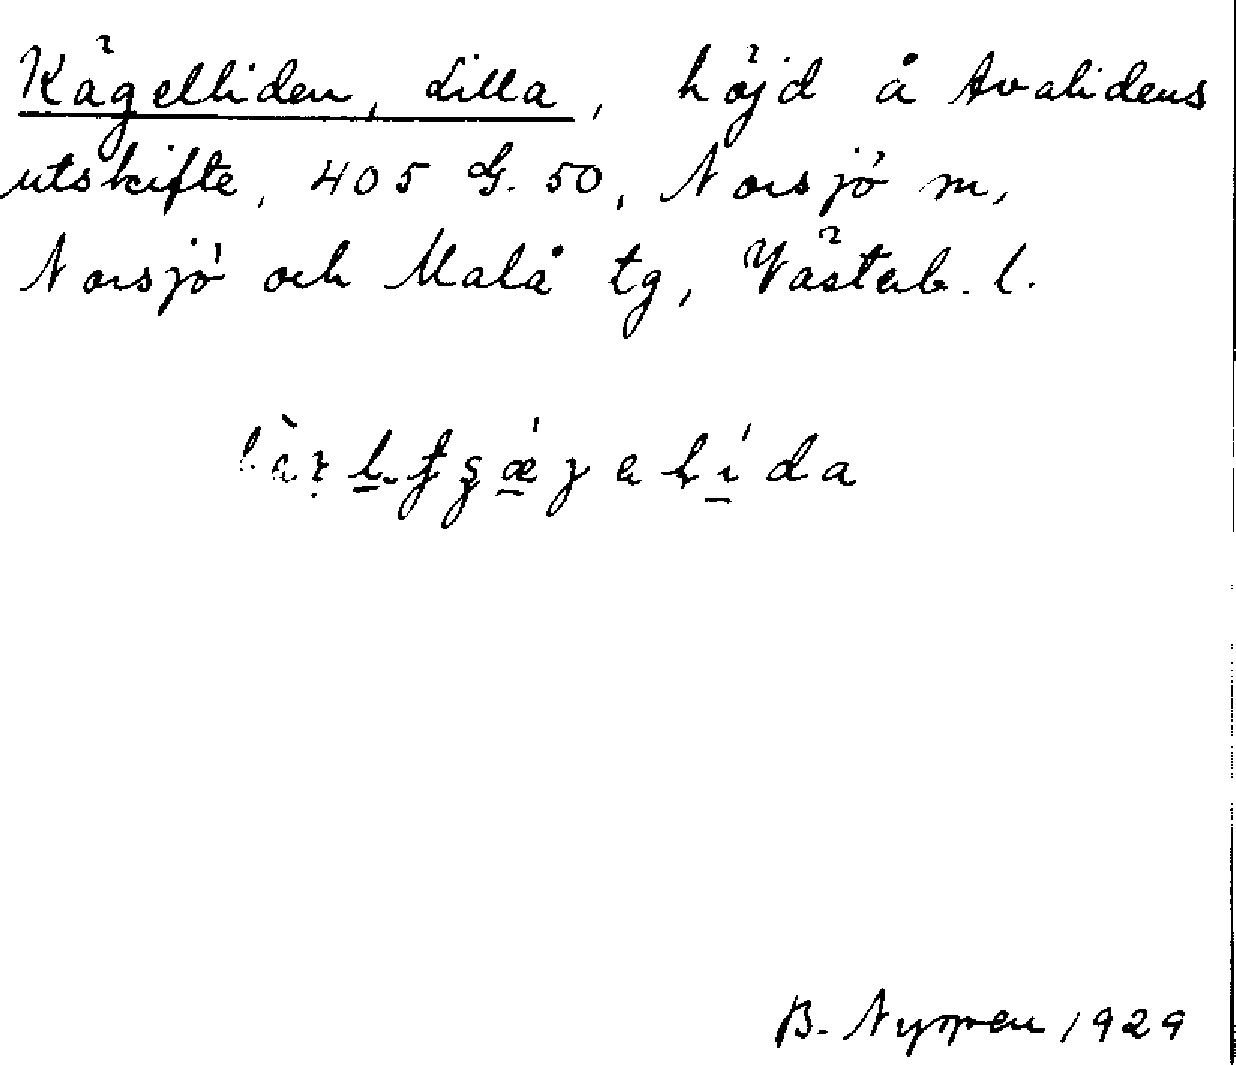 Kägelliden, Lilla, höjd å Avalidens
utskifte, 405 G. 50, Norsjö m,
Norsjö och Malå tg, Västerb. l.
B. Nyman 1929